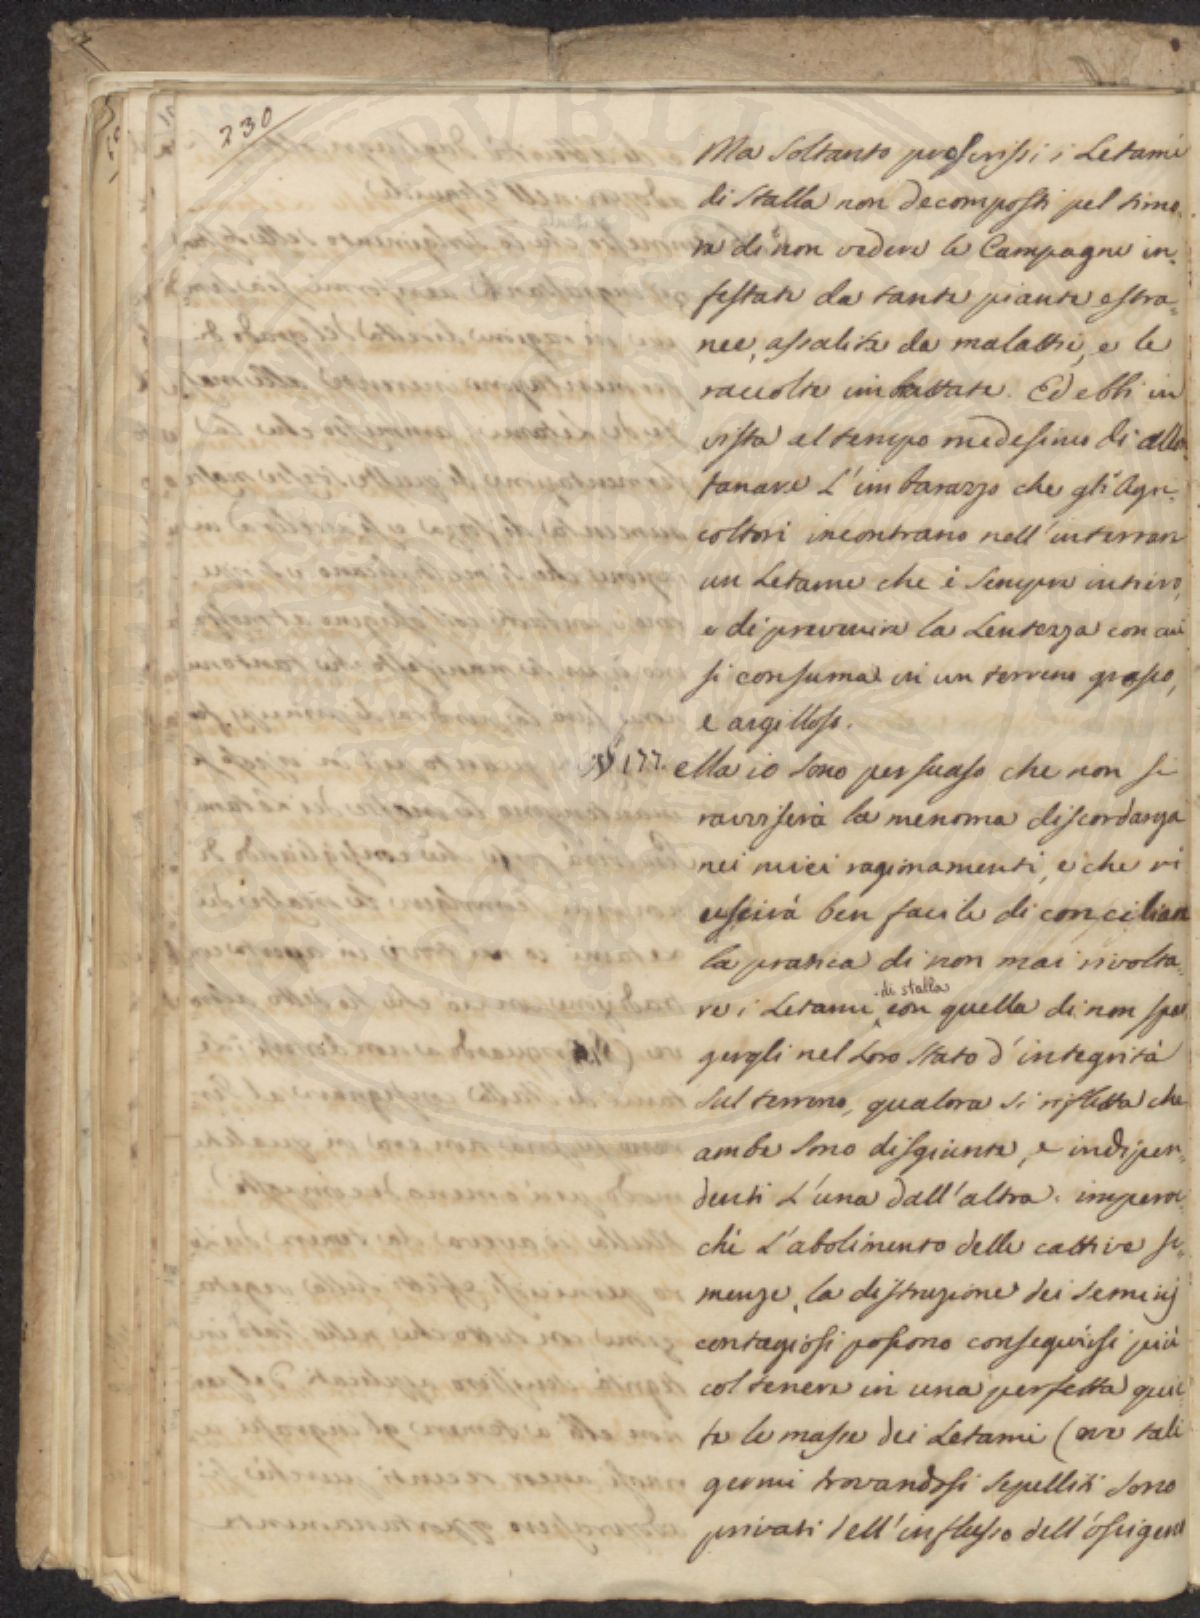 230
Ma soltanto proscrissi i Letami
di stalla non decomposti pel timo-
re di non vedere le Campagne in-
festate da tante piante estra-
nee, assalite da malattie, e le
raccolte imbrattate. Ed ebbi in
vista al tempo medesimo di allon-
tanare L'imbarazzo che gli Agri-
coltori incontrano nell'interrare
un Letame che è sempre intiero,
e di prevenire la Lentezza con cui
si consuma in un terreno grasso,
e argilloso.
§ 177. Ma io sono persuaso che non si
ravviserà la menoma discordanza
nei miei ragionamenti, e che ri
uscirà ben facile di conciliare
la pratica di non mai rivolta-
re i Letami di stalla con quella di non spar
gergli nel Loro stato d'integrità
sul terreno, qualora si rifletta che
ambe sono disgiunte, e indipen-
denti L'una dall'altra. imperoc-
chè L'abolimento delle cattive se-
menze, la distruzione dei seminj
contagiosi possono conseguirsi più
col tenere in una perfetta quie-
te le masse dei Letami (ove tali
germi trovandosi sepelliti sono
privati dell'influsso dell'ossigeno